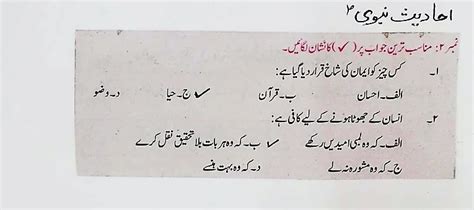 احادیث نبوی ۴
نمبر ۲: مناسب ترین جواب پر (✓) کا نشان لگائیں۔
۱۔ کس چیز کو ایمان کی شاخ قرار دیا گیا ہے:
الف۔ احسان ب۔ قرآن ✓ ج۔ حیا د۔ وضو
۲۔ انسان کے جھوٹا ہونے کے لیے کافی ہے:
الف۔ کہ وہ لمبی امیدیں رکھے ✓ ب۔ کہ وہ ہر بات بلا تحقیق نقل کرے
ج۔ کہ وہ مشورہ نہ لے د۔ کہ وہ بہت ہنسے